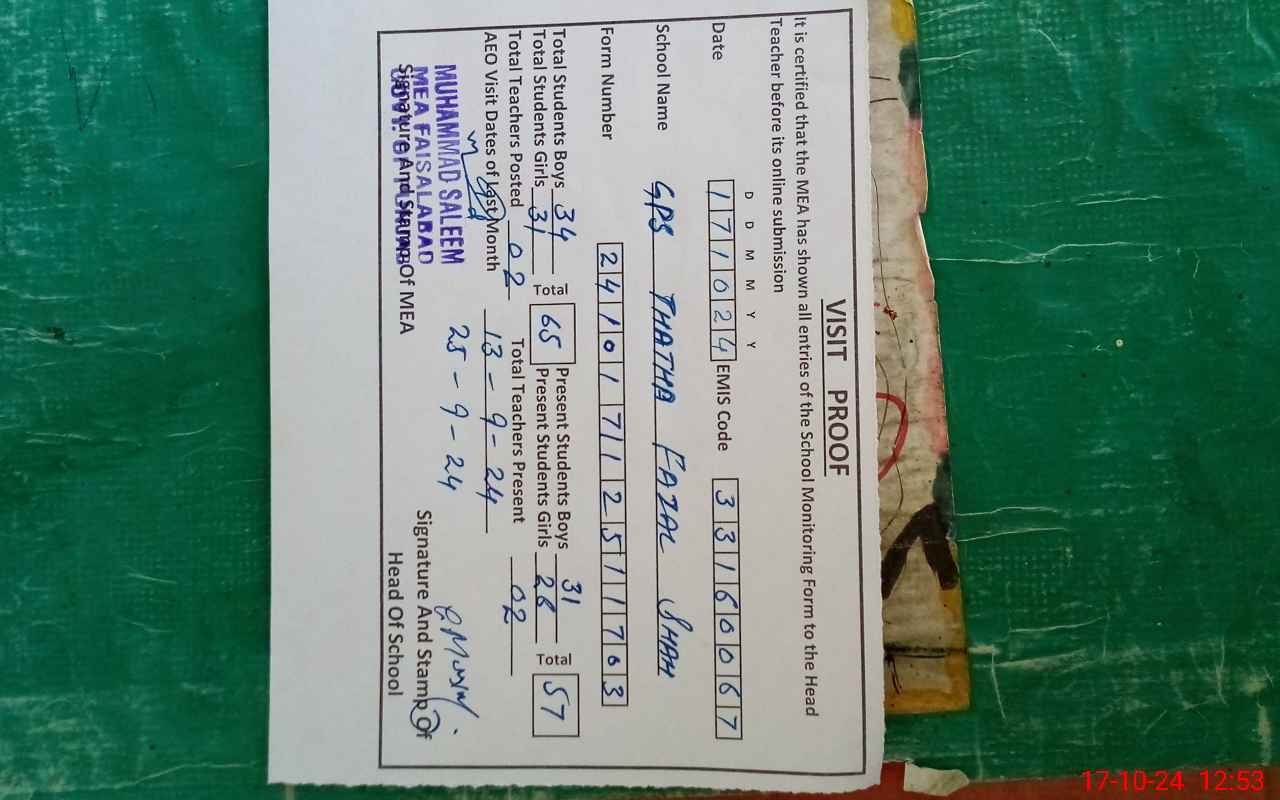 VISIT PROOF
It is certified that the MEA has shown all entries of the School Monitoring Form to the Head
Teacher before its online submission
D D M M Y Y
Date 171024 EMIS Code 33160067
School Name GPS THATHA FAZAL SHAH
Form Number 241017112511703
Total Students Boys 34 Total 65 Present Students Boys 31 Total 57
Total Students Girls 31 Present Students Girls 26
Total Teachers Posted 02 Total Teachers Present 02
AEO Visit Dates of last Month 13-9-24
25-9-24
MUHAMMAD SALEEM
MEA FAISALABAD
Signature And Stamp Of MEA
Signature And Stamp Of
Head Of School
17-10-24 12:53